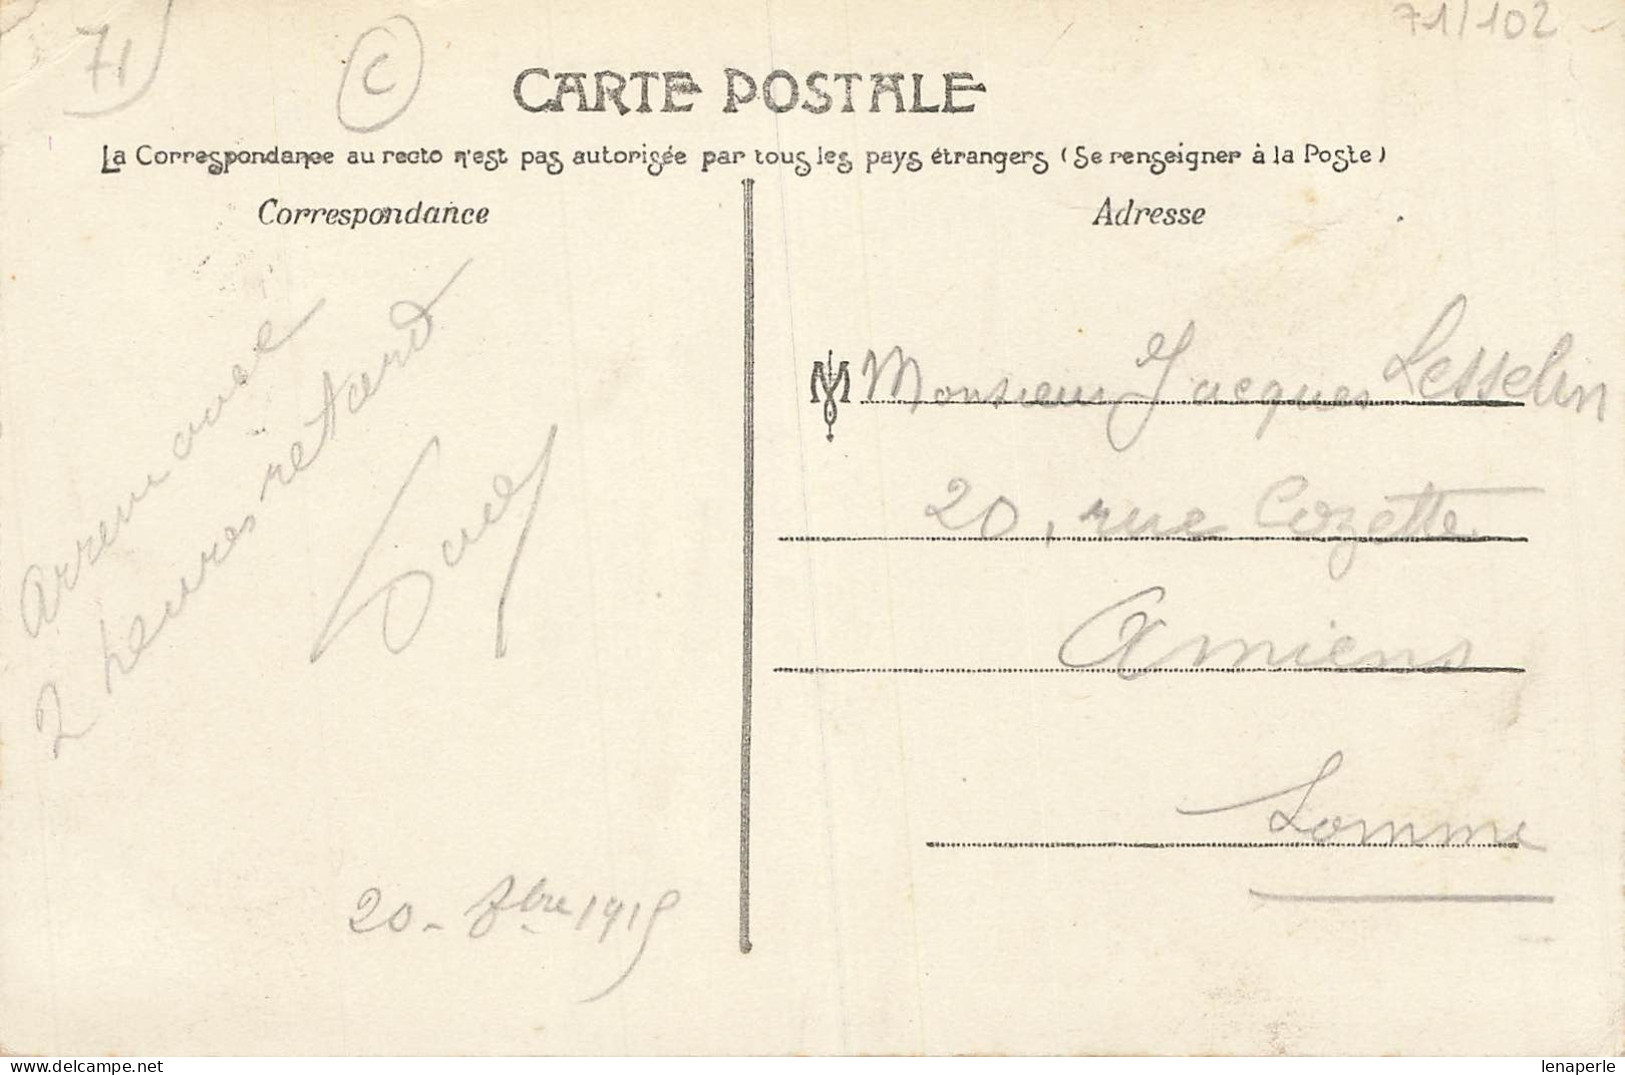 71
C
71/102
CARTE POSTALE
La Correspondance au recto n'est pas autorisée par tous les pays étrangers (Se renseigner à la Poste)
Correspondance
Adresse
avec
2 heures retard
20 - 7bre 1915
M Monsieur Jacques Lesselin
20, rue Cozette
Amiens
Somme
delcampe.net
lenaperle